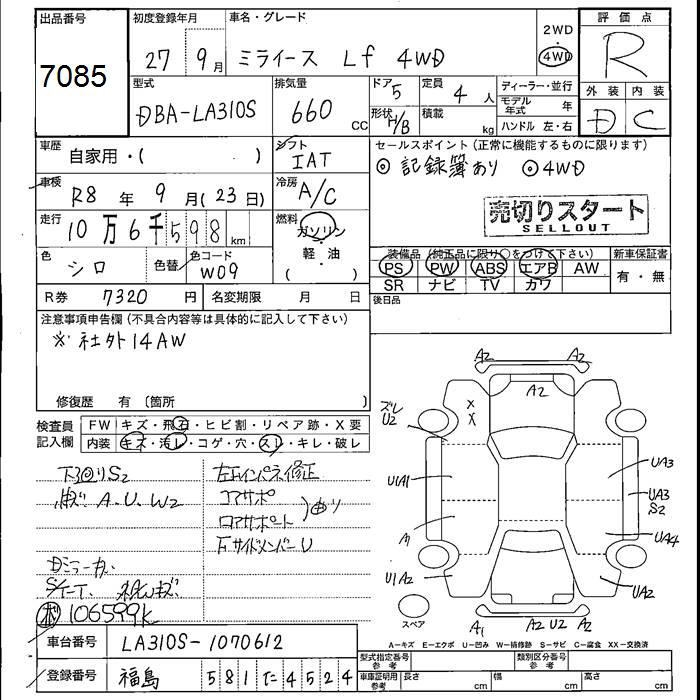 出品番号
7085
初度登録年月
27 9月
車名・グレード
ミライース Lf 4WD
2WD
4WD
評価点
R
外装 内装
D C
型式
DBA-LA310S
排気量
660 CC
ドア 5
形状 H/B
定員 4人
積載 kg
ディーラー・並行
モデル年式 年
ハンドル 左・右
車歴
自家用・( )
シフト
IAT
セールスポイント(正常に機能するものに限ります)
◎記録簿あり ◎4WD
車検
R8年 9月(23日)
冷房
A/C
売切りスタート
SELLOUT
走行
10万6千598km
燃料
ガソリン
軽・油
( )
色
シロ
色替
色コード
W09
装備品(純正品に限り○をつけて下さい)
PS PW ABS エアB AW
SR ナビ TV カワ
新車保証書
有・無
R券 7320円
名変期限 月 日
後日品
注意事項申告欄(不具合内容等は具体的に記入して下さい)
※社外14AW
修復歴 有〔箇所 〕
検査員記入欄
FW キズ・飛石・ヒビ割・リペア跡・X要
内装 キズ・汚レ・コゲ・穴・スレ・キレ・破レ
下回りS2
A.U.W2
Dミラーカバ
106599K
左Fインパネ修正
コアサポ
ロアサポート
Fサイドメンバーu
A2 A2
A2
ズレ
U2
X
X
UA3
U1A1
UA3
S2
A1
UA4
U1A2
UA2
スペア
A1 A2 U2 A2
A-キズ E-エクボ U-凹み W-補修跡 S-サビ C-腐食 XX-交換済
車台番号
LA310S-1070612
登録番号
福島 581 た 4524
型式指定番号
参考
類別区分番号
参考
車庫証明用
参考
長さ cm
幅 cm
高さ cm